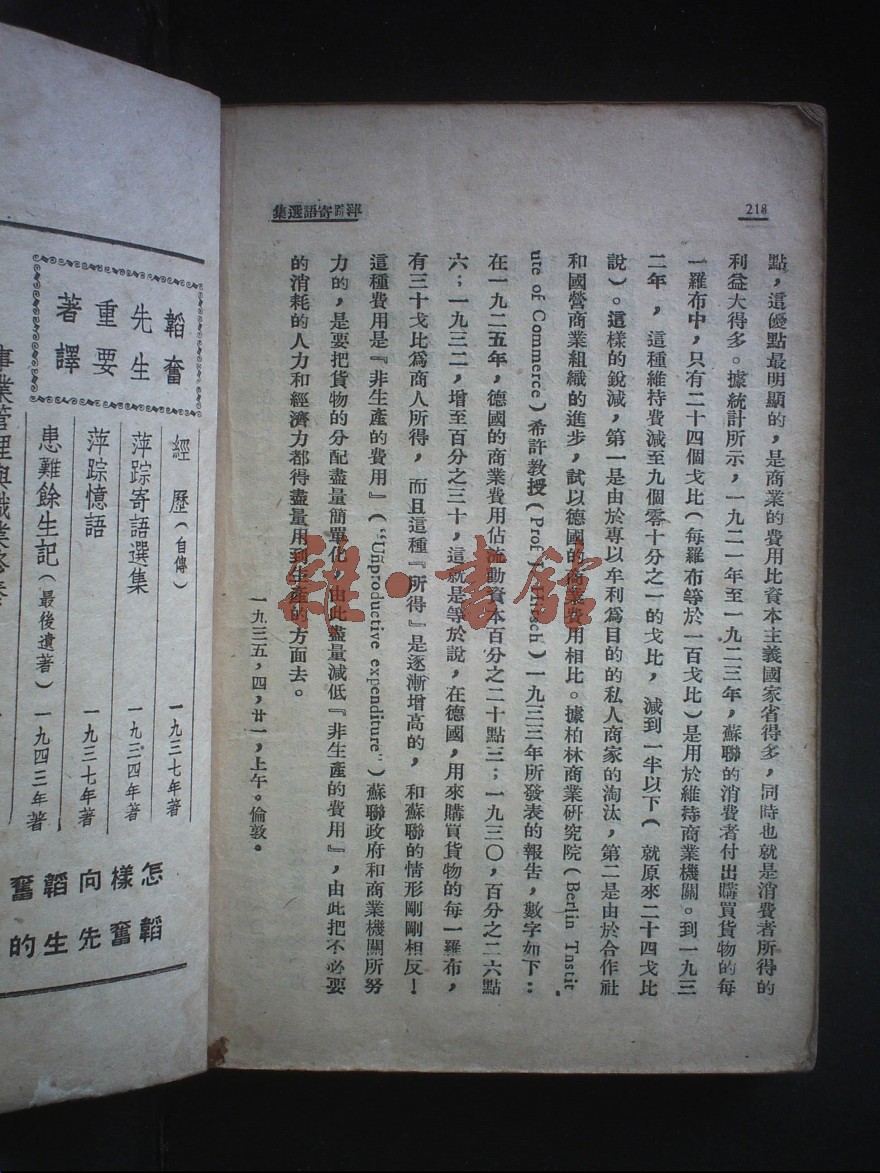 218
萍踪寄語選集
點，這優點最明顯的，是商業的費用比資本主義國家省得多，同時也就是消費者所得的
利益大得多。據統計所示，一九二一年至一九二三年，蘇聯的消費者付出購買貨物的每
一羅布中，只有二十四個戈比（每羅布等於一百戈比）是用於維持商業機關。到一九三
二年，這種維持費減至九個零十分之一的戈比，減到一半以下（就原來二十四戈比
說）。這樣的銳減，第一是由於專以牟利爲目的的私人商家的淘汰，第二是由於合作社
和國營商業組織的進步，試以德國的商業費用相比。據柏林商業研究院（Berlin Tnstit
ute of Commerce）希許教授（Prof. J. Hirsch）一九三三年所發表的報告，數字如下：
在一九二五年，德國的商業費用佔流動資本百分之二十點三；一九三〇，百分之二六點
六；一九三二，增至百分之三十，這就是等於說，在德國，用來購買貨物的每一羅布，
有三十戈比爲商人所得，而且這種『所得』是逐漸增高的，和蘇聯的情形剛剛相反！
這種費用是『非生產的費用』（“Unproductive expenditure”）蘇聯政府和商業機關所努
力的，是要把貨物的分配盡量簡單化，由此盡量減低『非生產的費用』，由此把不必要
的消耗的人力和經濟力都得盡量用到生產的方面去。
一九三五，四，廿一，上午。倫敦。
雜·書館
韜奮
先生
重要
著譯
經歷（自傳）一九三七年著
萍踪寄語選集 一九三四年著
萍踪憶語 一九三七年著
患難餘生記（最後遺著）一九四三年著
事業管理與職業修養
怎樣向韜奮
韜奮先生的